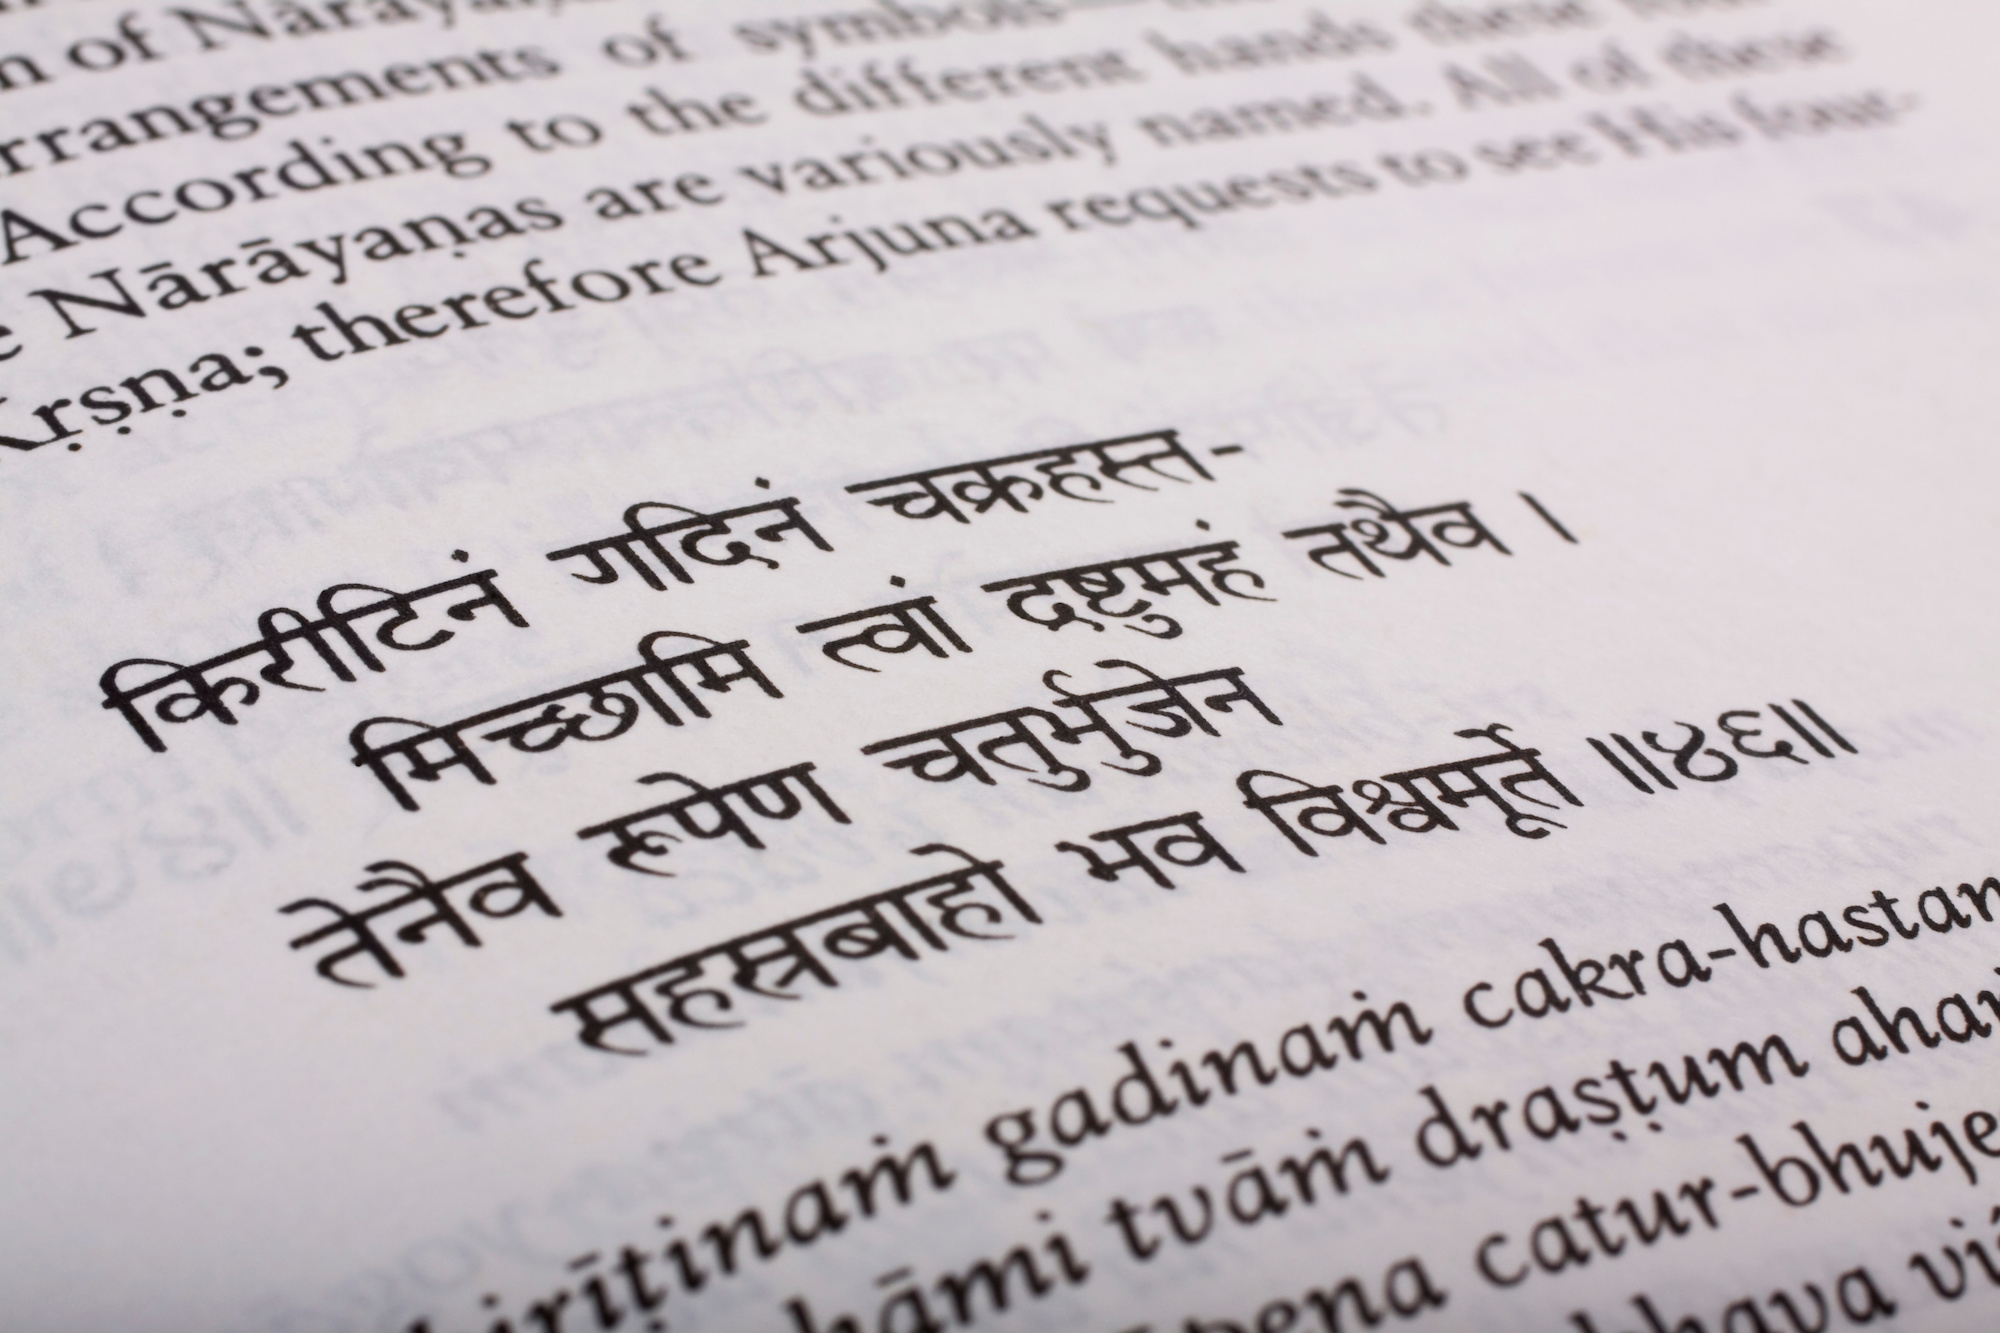 of Nārāya
arrangements of symbols
According to the different hands these
Nārāyaṇas are variously named. All of these
Kṛṣṇa; therefore Arjuna requests to see His four-
किरीटिनं गदिनं चक्रहस्त-
मिच्छामि त्वां द्रष्टुमहं तथैव ।
तेनैव रूपेण चतुर्भुजेन
सहस्रबाहो भव विश्वमूर्ते ॥४६॥
irīṭinaṁ gadinaṁ cakra-hastam
hāmi tvāṁ draṣṭum aha
peṇa catur-bhuje
bhava viś